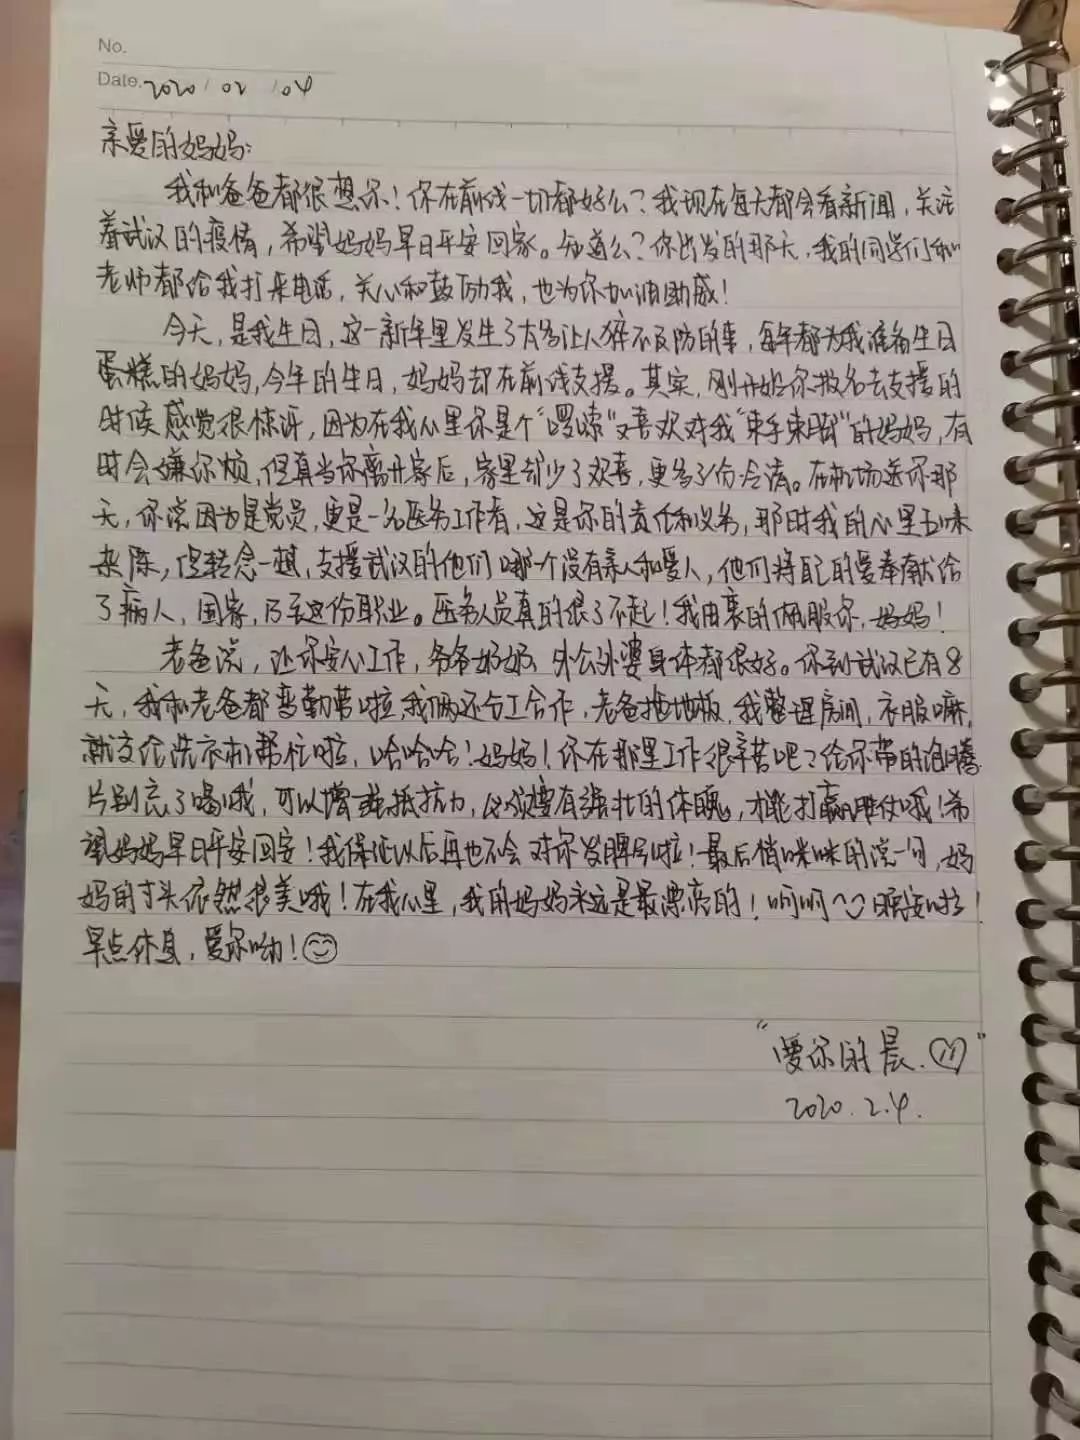 No.
Date. 2020 / 02 / 04
亲爱的妈妈:
我和爸爸都很想你！你在前线一切都好么？我现在每天都会看新闻，关注
着武汉的疫情，希望妈妈早日平安回家。知道么？你出发的那天，我的同学们和
老师都给我打来电话，关心和鼓励我，也为你加油助威！
今天，是我生日，这一新年里发生了太多让人猝不及防的事，每年都为我准备生日
蛋糕的妈妈，今年的生日，妈妈却在前线支援。其实，刚开始你报名去支援的
时候感觉很惊讶，因为在我心里你是个“啰嗦”又喜欢对我“束手束脚”的妈妈，有
时会嫌你烦，但真当你离开家后，家里却少了欢喜，更多了份冷清。在机场送你那
天，你说因为是党员，更是一名医务工作者，这是你的责任和义务，那时我的心里五味
杂陈，但转念一想，支援武汉的他们哪一个没有亲人和爱人，他们将自己的爱奉献给
了病人，国家，乃至这份职业。医务人员真的很了不起！我由衷的佩服你，妈妈！
老爸说，让你安心工作，爷爷奶奶、外公外婆身体都很好。你到武汉已有8
天，我和老爸都变勤劳啦，我们俩还分工合作，老爸拖地板，我整理房间，衣服嘛，
就交给洗衣机帮忙啦，哈哈哈！妈妈！你在那里工作很辛苦吧？给你带的泡腾
片别忘了喝哦，可以增强抵抗力，必须要有强壮的体魄，才能打赢胜仗哦！希
望妈妈早日平安回家！我保证以后再也不会对你发脾气啦！最后悄咪咪的说一句，妈
妈的寸头依然很美哦！在我心里，我的妈妈永远是最漂亮的！呵呵~晚安啦！
早点休息，爱你呦！
“爱你的晨.”
2020.2.4.